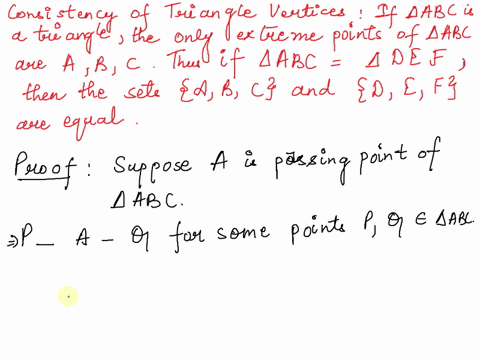 Consistency of Triangle Vertices : If ΔABC is
a triangle, the only extreme points of ΔABC
are A, B, C. Thus if ΔABC = Δ DEF,
then the sets {A, B, C} and {D, E, F}
are equal.
Proof : Suppose A is passing point of
ΔABC.
⇒ P – A – Q for some points P, Q ∈ ΔABC